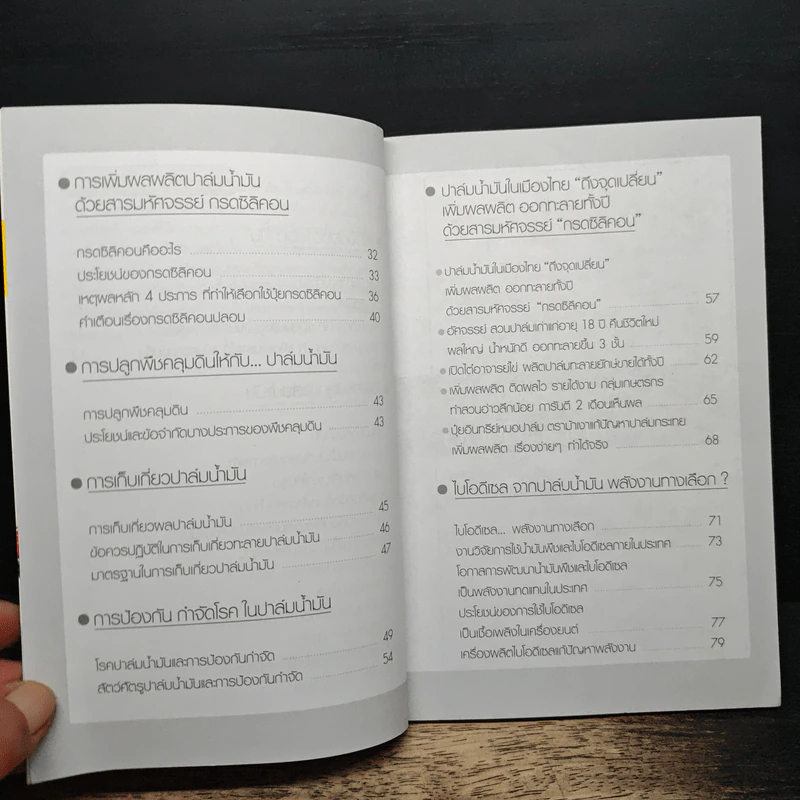 ● การเพิ่มผลผลิตปาล์มน้ำมัน
ด้วยสารมหัศจรรย์ กรดซิลิคอน
กรดซิลิคอนคืออะไร 32
ประโยชน์ของกรดซิลิคอน 33
เหตุผลหลัก 4 ประการ ที่ทำให้เลือกใช้ปุ๋ยกรดซิลิคอน 36
คำเตือนเรื่องกรดซิลิคอนปลอม 40
● การปลูกพืชคลุมดินให้กับ... ปาล์มน้ำมัน
การปลูกพืชคลุมดิน 43
ประโยชน์และข้อจำกัดบางประการของพืชคลุมดิน 43
● การเก็บเกี่ยวปาล์มน้ำมัน
การเก็บเกี่ยวผลปาล์มน้ำมัน 45
ข้อควรปฏิบัติในการเก็บเกี่ยวทะลายปาล์มน้ำมัน 46
มาตรฐานในการเก็บเกี่ยวปาล์มน้ำมัน 47
● การป้องกัน กำจัดโรค ในปาล์มน้ำมัน
โรคปาล์มน้ำมันและการป้องกันกำจัด 49
สัตว์ศัตรูปาล์มน้ำมันและการป้องกันกำจัด 54
● ปาล์มน้ำมันในเมืองไทย “ถึงจุดเปลี่ยน”
เพิ่มผลผลิต ออกทะลายทั้งปี
ด้วยสารมหัศจรรย์ “กรดซิลิคอน”
● ปาล์มน้ำมันในเมืองไทย “ถึงจุดเปลี่ยน”
เพิ่มผลผลิต ออกทะลายทั้งปี
ด้วยสารมหัศจรรย์ “กรดซิลิคอน” 57
● อัศจรรย์ สวนปาล์มเก่าแก่อายุ 18 ปี คืนชีวิตใหม่
ผลใหญ่ น้ำหนักดี ออกทะลายขึ้น 3 ชั้น 59
● เปิดไต๋อาจารย์ไข่ ผลิตปาล์มทะลายยักษ์ขายได้ทั้งปี 62
● เพิ่มผลผลิต ติดผลไว รายได้งาม กลุ่มเกษตรกร
ทำสวนอ่าวลึกน้อย การันตี 2 เดือนเห็นผล 65
● ปุ๋ยอินทรีย์หมอปาล์ม ตราม้าเงาแก้ปัญหาปาล์มกระเทย
เพิ่มผลผลิต เรื่องง่ายๆ ทำได้จริง 68
● ไบโอดีเซล จากปาล์มน้ำมัน พลังงานทางเลือก ?
ไบโอดีเซล... พลังงานทางเลือก 71
งานวิจัยการใช้น้ำมันพืชและไบโอดีเซลภายในประเทศ 73
โอกาสการพัฒนาน้ำมันพืชและไบโอดีเซล
เป็นพลังงานทดแทนในประเทศ 75
ประโยชน์ของการใช้ไบโอดีเซล
เป็นเชื้อเพลิงในเครื่องยนต์ 77
เครื่องผลิตไบโอดีเซลแก้ปัญหาพลังงาน 79